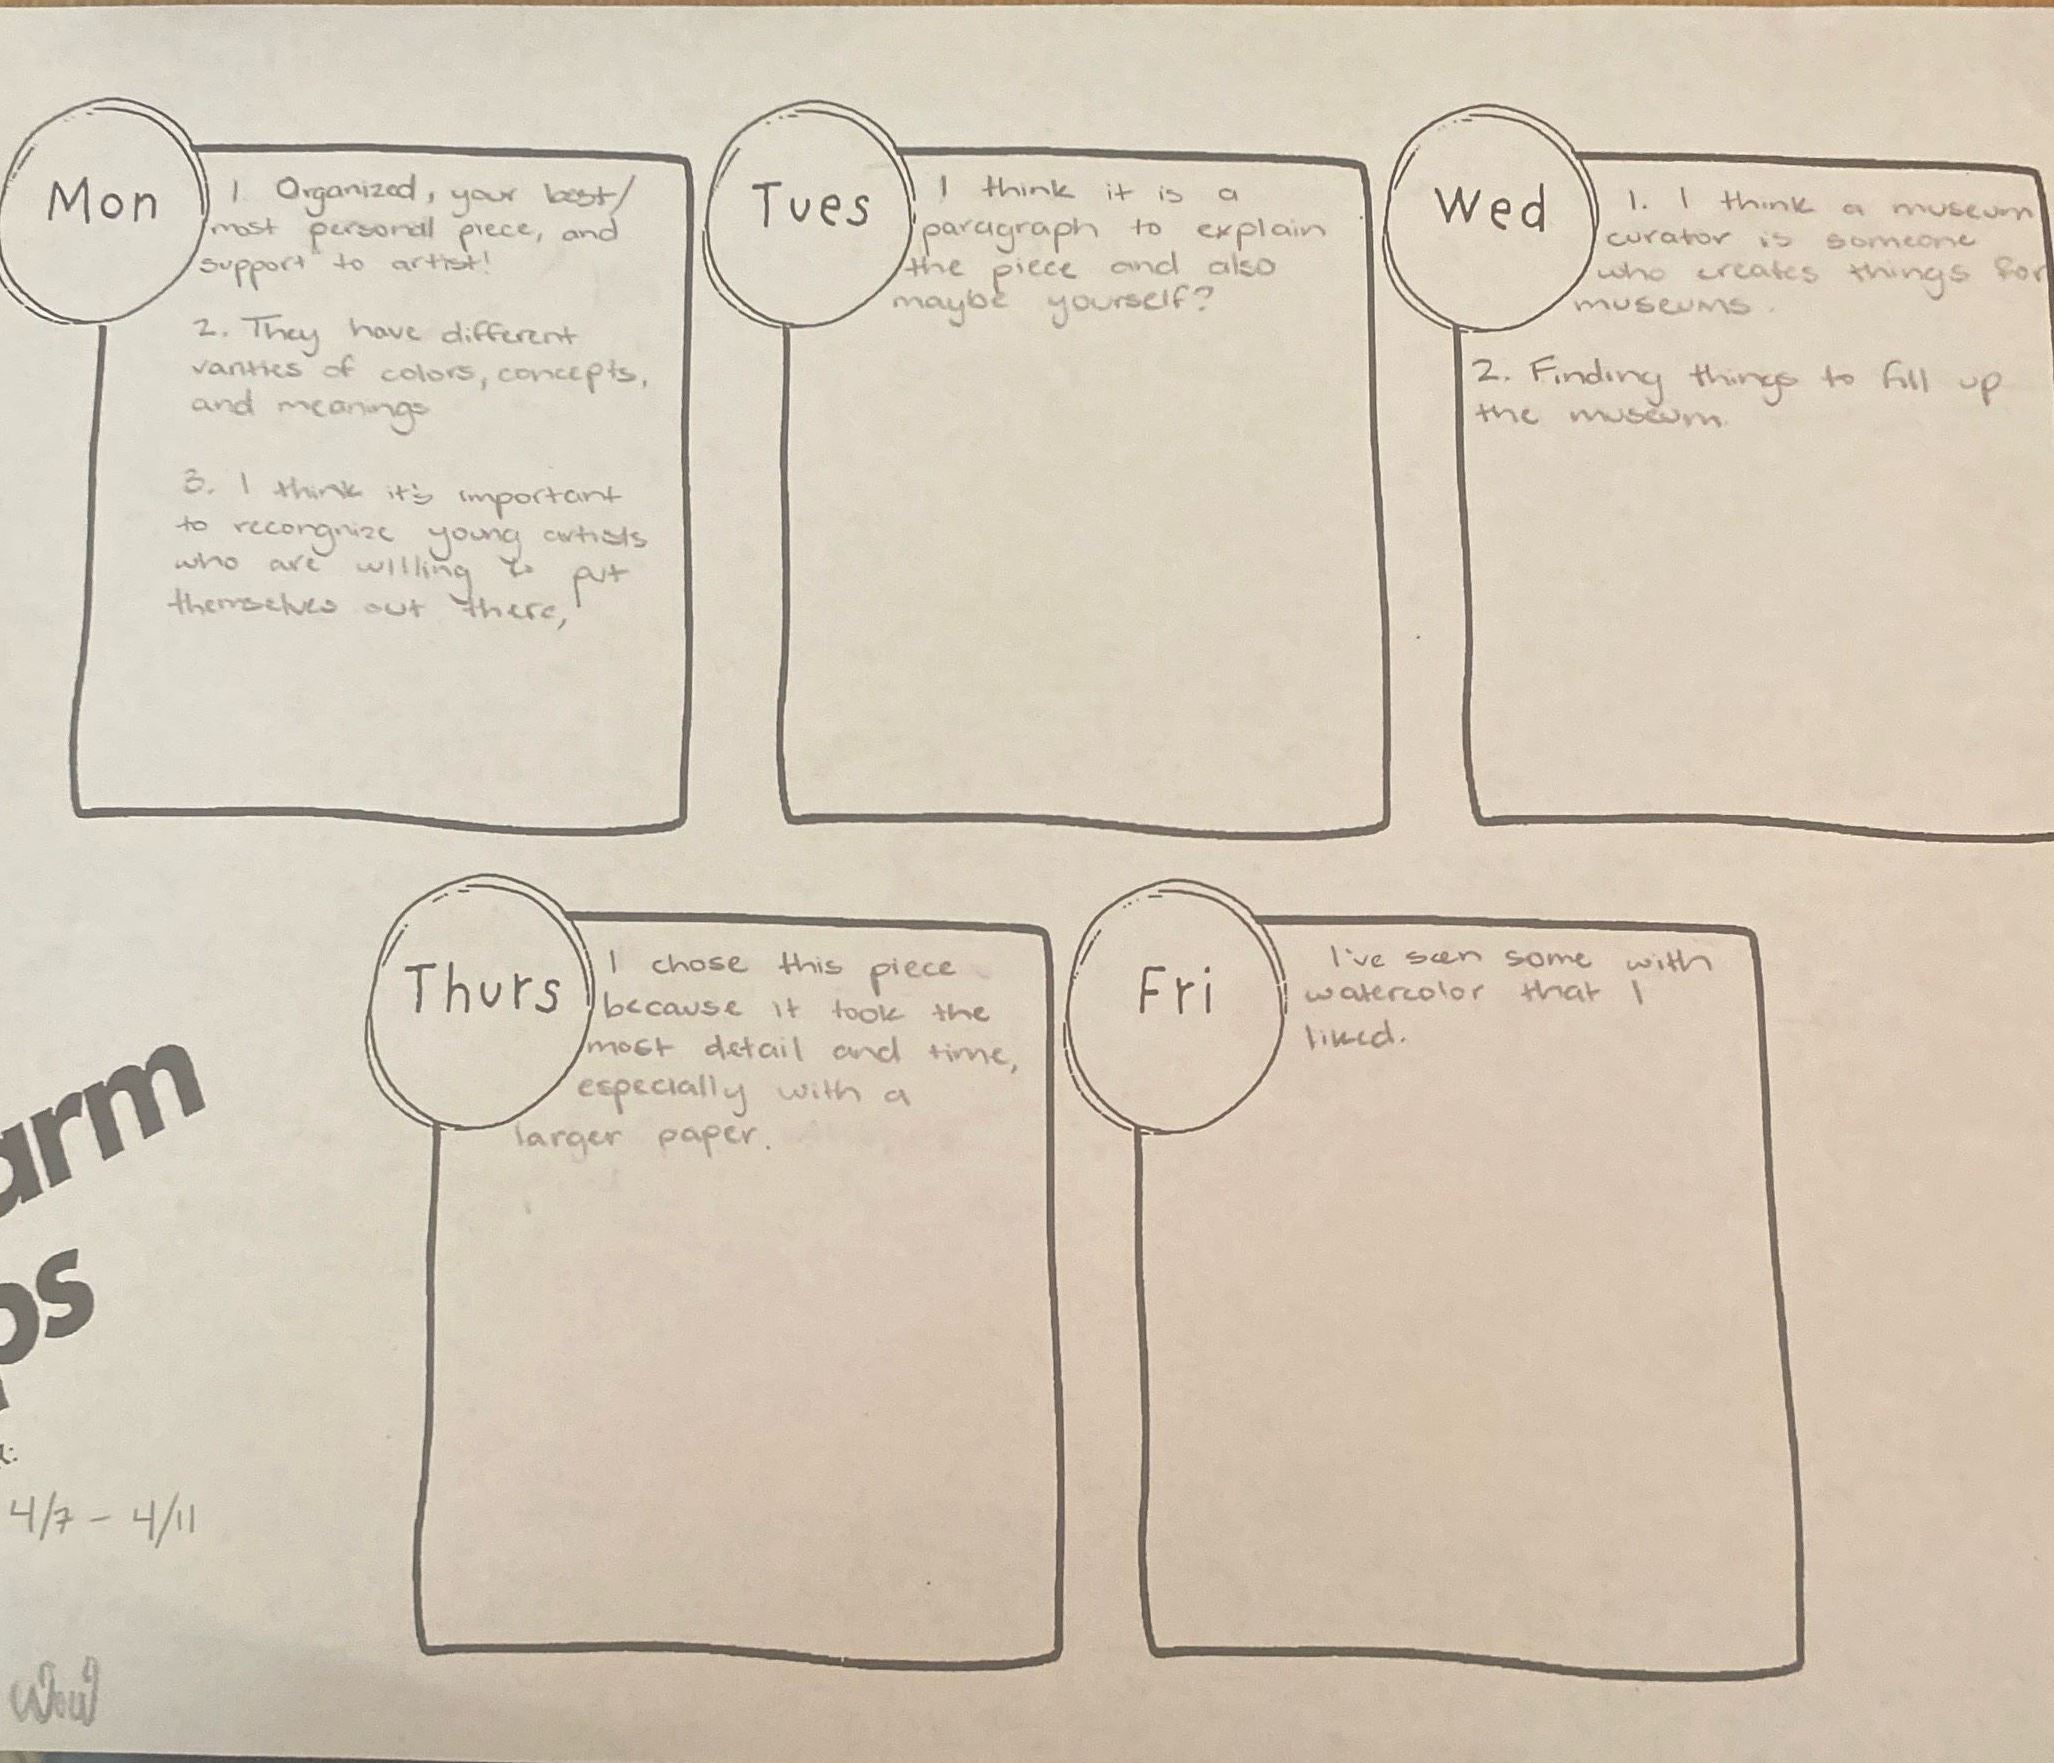 Mon
1. Organized, your best/
most personal piece, and
support to artist!
2. They have different
varities of colors, concepts,
and meanings
3. I think it's important
to recorgnize young artists
who are willing to put
themselves out there,
Tues
I think it is a
paragraph to explain
the piece and also
maybe yourself?
Wed
1. I think a museum
curator is someone
who creates things for
museums.
2. Finding things to fill up
the museum
Thurs
I chose this piece
because it took the
most detail and time,
especially with a
larger paper.
Fri
I've seen some with
watercolor that I
liked.
arm
ps
4/7 - 4/11
Wow